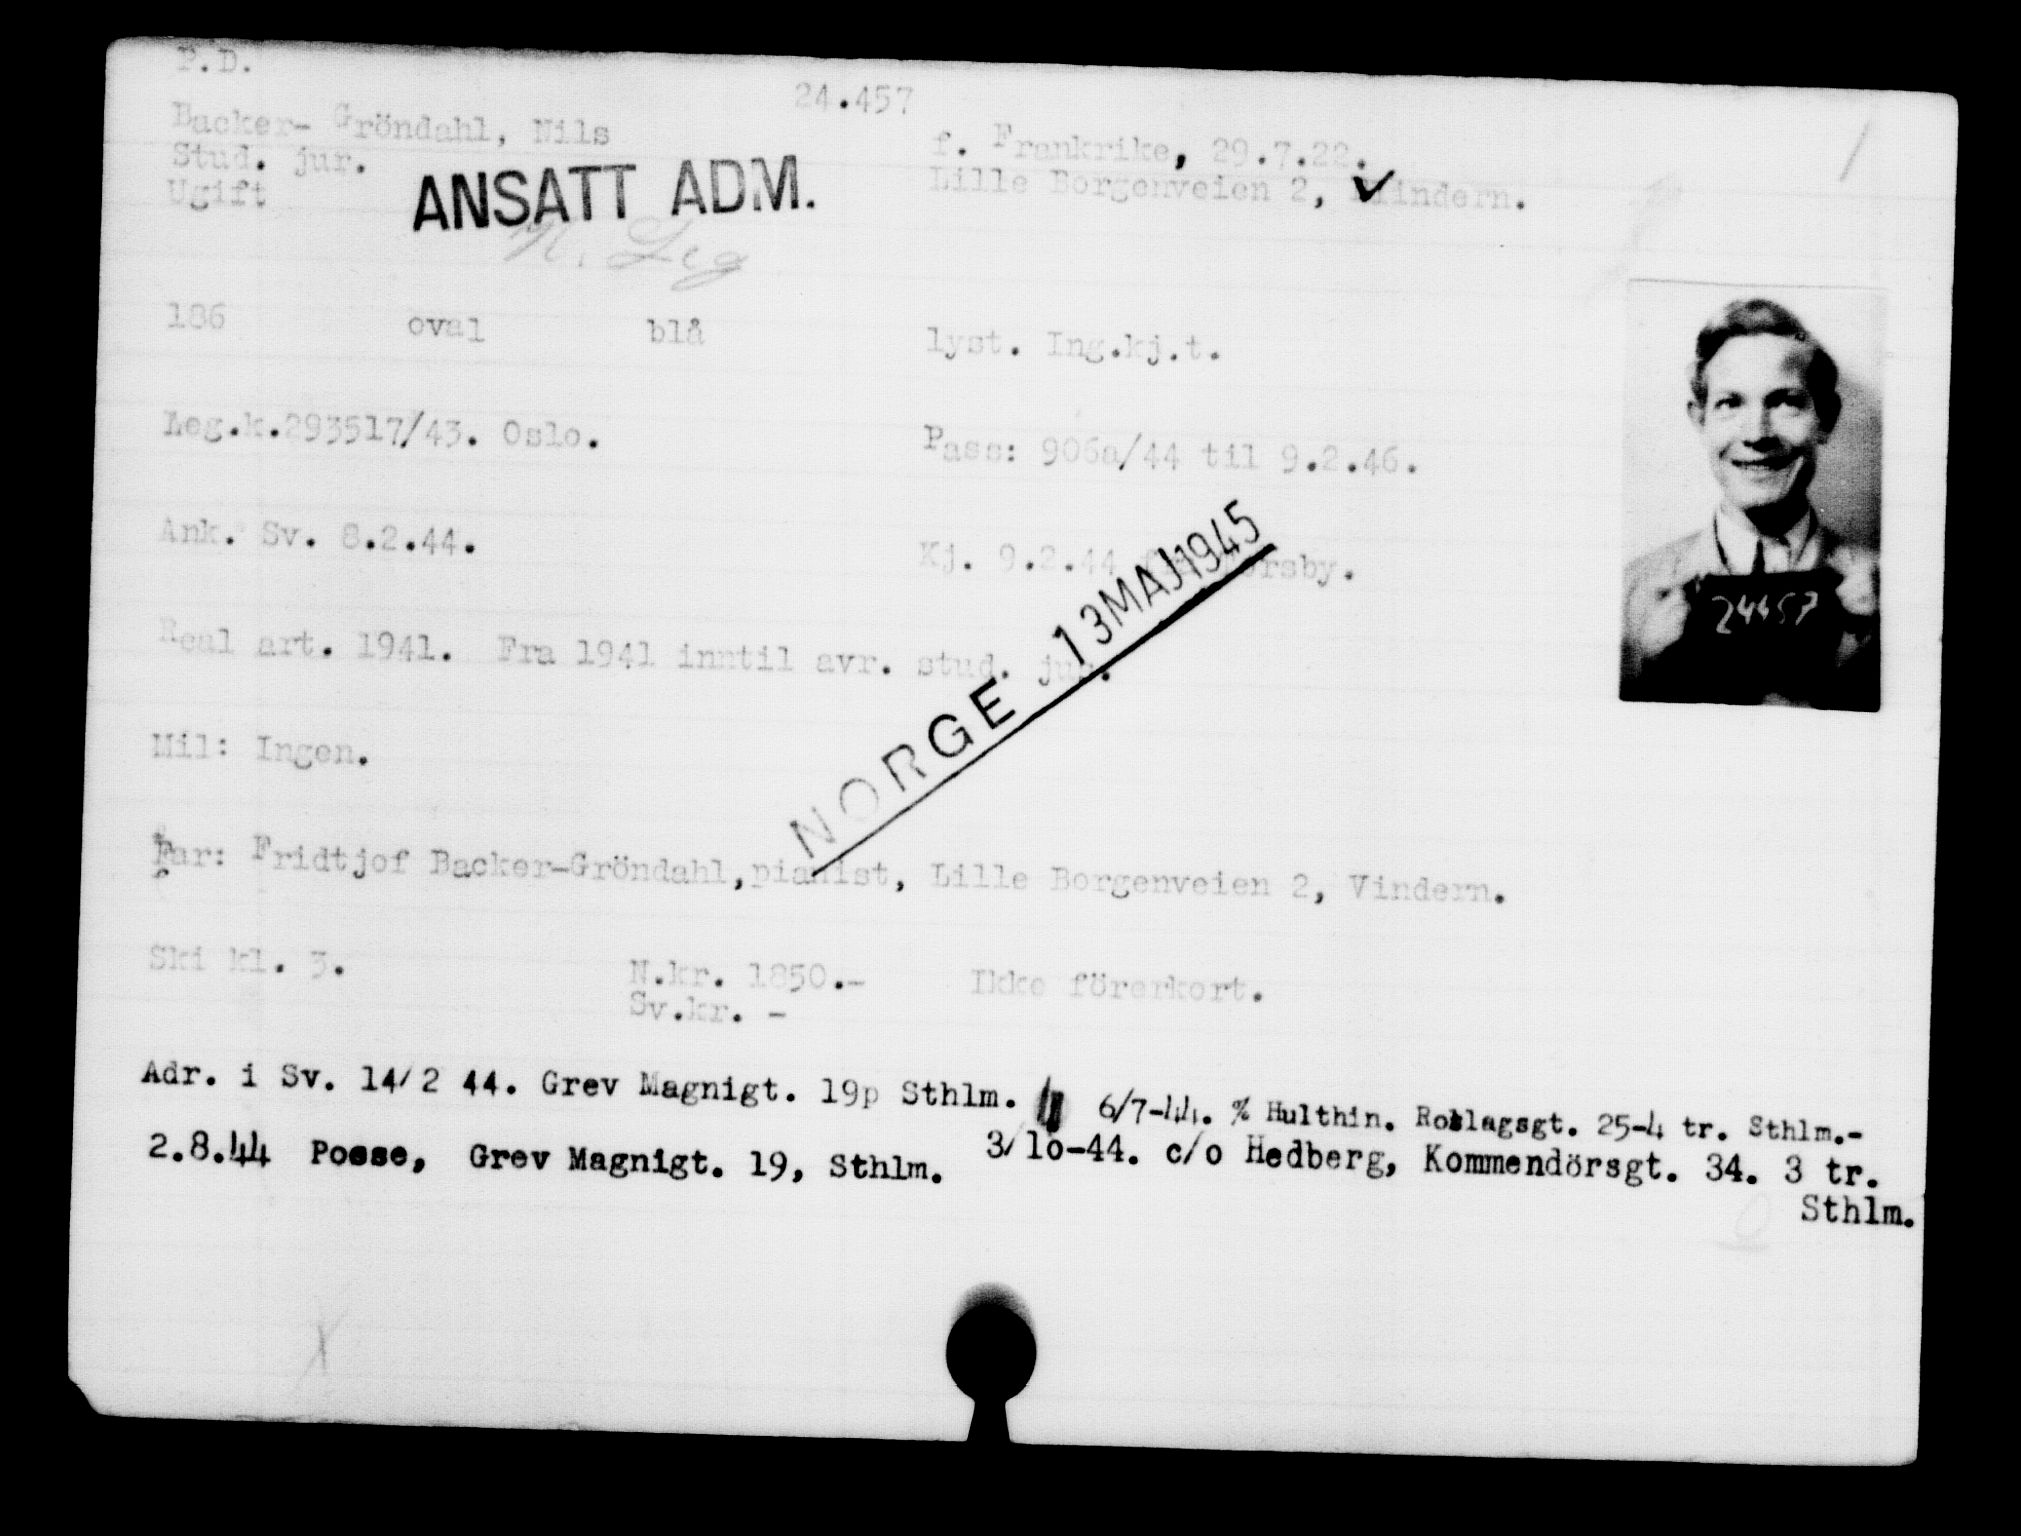 P.D.
24.457
Backer- Gröndahl, Nils
f. Frankrike, 29.7.22.
Stud. jur.
Lille Borgenveien 2, Vindern.
Ugift
ANSATT ADM.
N. Leg
186 oval blå lyst. Ing.kj.t.
Leg.k.293517/43. Oslo. Pass: 906a/44 til 9.2.46.
Ank. Sv. 8.2.44. Kj. 9.2.44
Real art. 1941. Fra 1941 inntil avr. stud. jur.
NORGE 13 MAJ 1945
Mil: Ingen.
Far: Fridtjof Backer-Gröndahl, pianist, Lille Borgenveien 2, Vindern.
Ski kl. 3. N.kr. 1850.- Ikke förerkort.
Sv.kr. -
Adr. i Sv. 14/2 44. Grev Magnigt. 19p Sthlm. 6/7-44. % Hulthin. Roslagsgt. 25-4 tr. Sthlm.-
2.8.44 Posse, Grev Magnigt. 19, Sthlm. 3/10-44. c/o Hedberg, Kommendörsgt. 34. 3 tr.
Sthlm.
24457